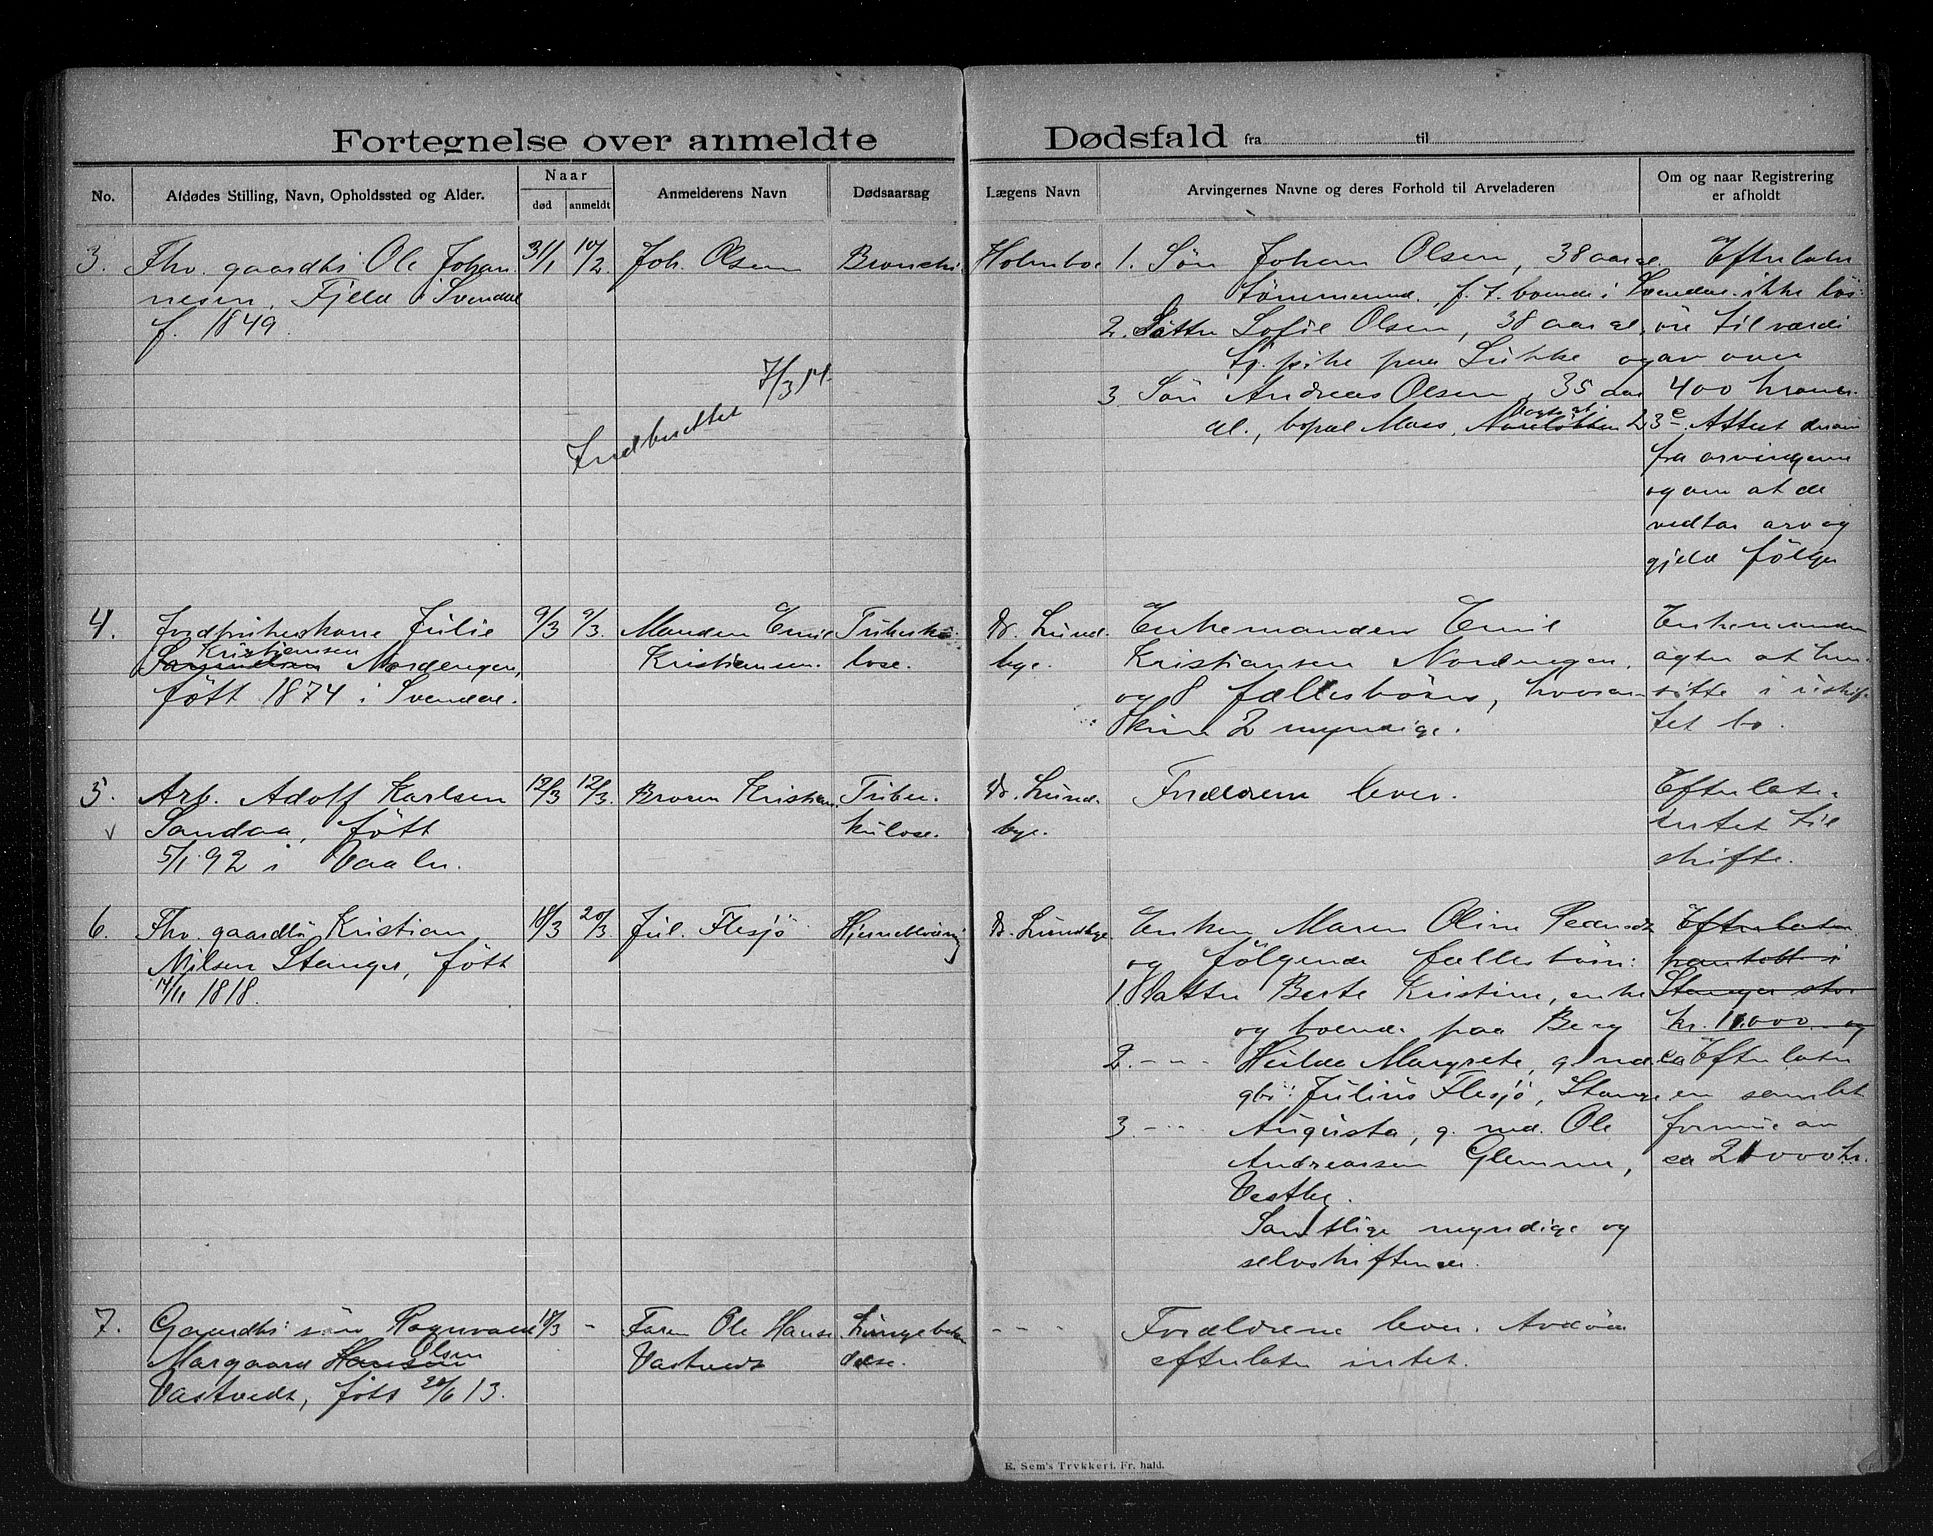 Fortegnelse over anmeldte Dødsfald fra til
No.
Afdødes Stilling, Navn, Opholdssted og Alder.
Naar
død
anmeldt
Anmelderens Navn
Dødsaarsag
Lægens Navn
Arvingernes Navne og deres Forhold til Arveladeren
Om og naar Registrering
er afholdt
3.
Fhv. gaardbr. Ole Johan
nesen, Fjeld i Svendal
f. 1849.
31/1
10/2
Joh. Olsen
Bronchi
Indberettet 7/3 14.
Holmboe
1. Søn Johan Olsen, 38 aar gl.
tømmermd., f. t. boende i Svendal.
2. Datter Sofie Olsen, 38 aar gl,
tj. pike paa
3. Søn Andreas Olsen, 35 aar
gl., bopæl Moss,
Efterlater
ikke løs-
øre til værdi
av over
400 kroner.
Attest derom
fra arvingerne
og om at de
vedtar arv og
gjeld følger
4.
Jordbrukerkone Julie
Kristiansen
Nordengen,
født 1874 i Svendal.
9/3
9/3.
Manden Emil
Kristiansen.
Tuberku-
lose.
Dr. Lund-
bye.
Enkemanden Emil
Kristiansen Nordengen,
og 8 fællesbørn, hvorav
kun 2 myndige.
Enkemanden
agter at hen-
sitte i uskif-
tet bo.
5.
v
Arb. Adolf Karlsen
Sandaa, født
5/1 92 i Vaaler.
12/3
12/3.
Broren Kristian
Tuber-
kulose.
Dr. Lund-
bye.
Forældrene lever.
Efterlate-
intet til
skifte.
6.
Fhv. gaardbr. Kristian
Nilsen Stange, født
14/11 1818.
18/3
20/3
Jul. Flesjø
Dr. Lundbye
Enken Maren Oline Pedersdt
og følgende fællesbørn:
1. Datter Berte Kristine, enke
og boende paa Berg
2. - - - Hulda Margrete, g. md.
gbr. Julius Flesjø, Stange
3. - - - Augusta, g. md. Ole
Andreassen Glemme,
Vestby.
Samtlige myndige og
selvskiftende.
Efterlater
pantobl. i
Stange stor
kr. 11.000 og
Efterlater
en samlet
formue av
ca 21000 kr.
7.
Gaardbr. søn Ragnvald
Olsen
Margaard Hansen
Vastvedt, født 20/6 13.
18/3
-
Faren Ole Hanse
Vastvedt
Lungebeten
delse.
- - -
Forældrene lever. Avdøde
efterlater intet.
E. Sem's Trykkeri. Fr. hald.